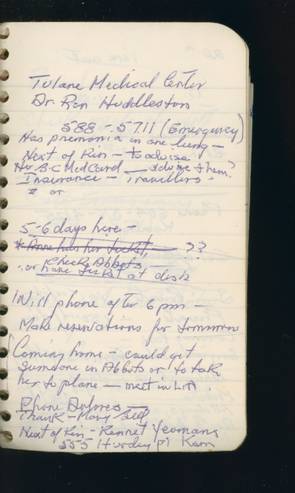 Tulane Medical Center
Dr Ron Huddleston
588-5711 (Emergency)
Has pneumonia in one lung -
Next of Kin - to advise
Her B.C Med Card - advise them?
Insurance - Travellers -
or
5-6 days here -
* Anne has her ticket, ??
Check Abbots
or have ticket at desk
Will phone after 6 pm -
Make reservations for tommorow
Coming home - could get
someone in Abbots or to take
her to plane - meet in
Phone Dolores
Thank - Mary
Next of Kin - Kennet Yeomans
555 Pl Kam